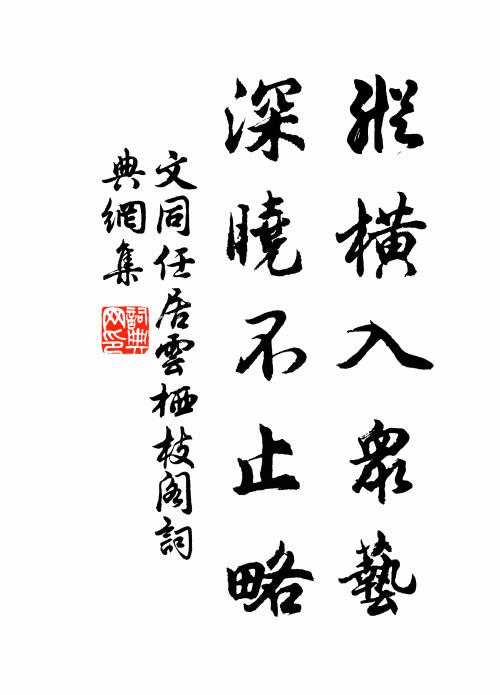 縱橫入衆藝
深曉不止略
文同任居雲栖枝閣詞
典網集
詞典
网印